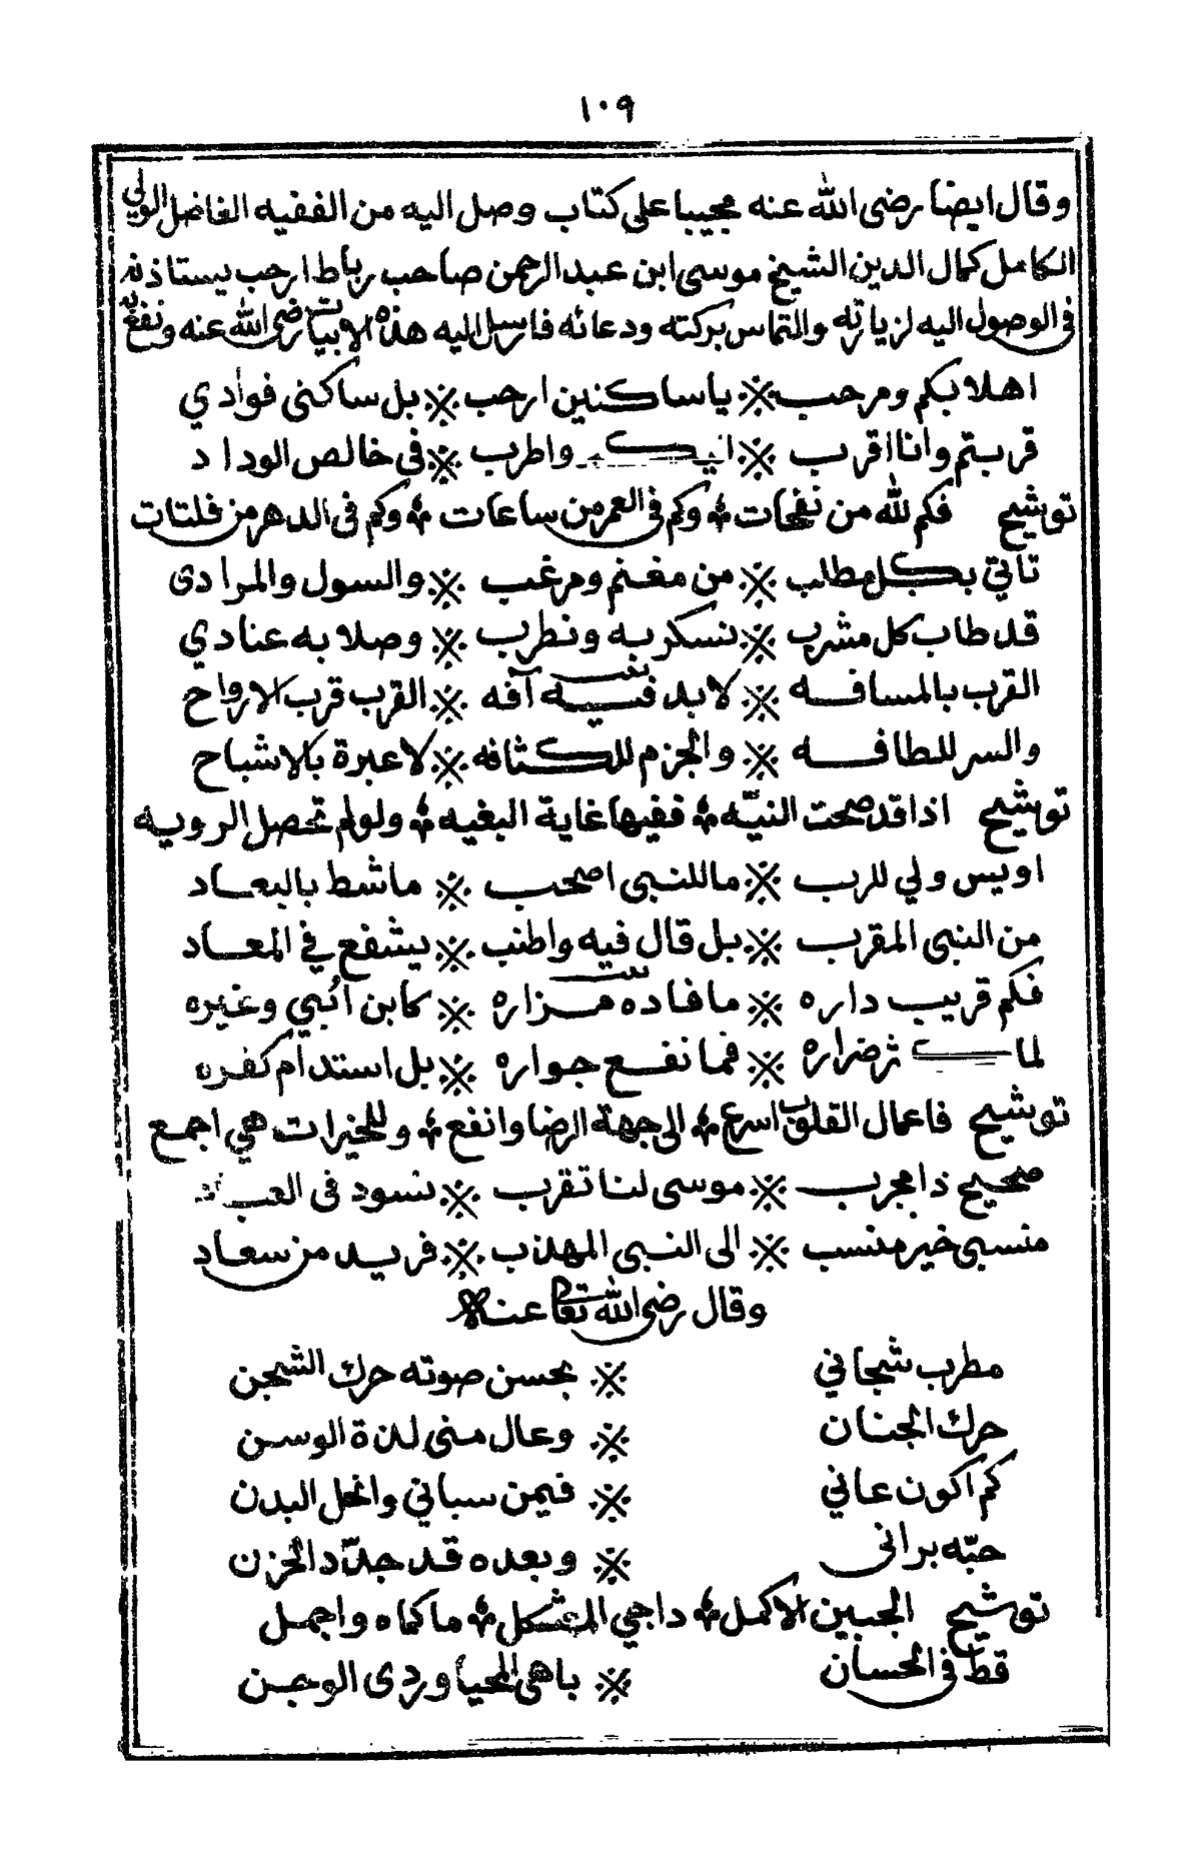 ١٠٩
وقال ايضا رضى الله عنه مجيبا على كتاب وصل اليه من الفقيه الفاضل الولي
الكامل كمال الدين الشيخ موسى ابن عبد الرحمن صاحب رباط ارحب يستاذنه
فى الوصول اليه لزيارته والتماس بركته ودعائه فارسل اليه هذه الابيات رضى الله عنه ونفع به
اهلا بكم ومرحب ※ يا ساكنين ارحب ※ بل ساكنى فوادي
قربتم وانا اقرب ※ واطرب ※ فى خالص الوداد
توشيح فكم لله من نفحات ؞ وكم فى العمر من ساعات ؞ وكم فى الدهر من فلتات
تاتي بكل مطلب ※ من مغنم ومرغب ※ والسول والمرادى
قد طاب كل مشرب ※ نسكر به ونطرب ※ وصلا به عنادي
القرب بالمسافه ※ لا بد فيه آفه ※ القرب قرب الارواح
والسر للطافه ※ والجزم للكثافه ※ لا عبرة بالاشباح
توشيح اذا قد صحت النيّه ؞ ففيها غاية البغيه ؞ ولو لم تحصل الرويه
اويس ولي للرب ※ ما للنبى اصحب ※ ما شط بالبعاد
من النبى المقرب ※ بل قال فيه واطنب ※ يشفع في المعاد
فكم قريب داره ※ ما فاده مزاره ※ كابن اُبي وغيره
لما ضراره ※ فما نفع جواره ※ بل استدام كفره
توشيح فاعمال القلوب اسرع ؞ الى جهة الرضا وانفع ؞ وللخيرات هي اجمع
صحيح ذا مجرب ※ موسى لنا تقرب ※ نسود فى
منسبى خير منسب ※ الى النبى المهذب ※ فريد من سعاد
وقال رضى الله تعالى عنه
مطرب شجاني ※ بحسن صوته حرك الشجن
حرك الجنان ※ وعال منى لذة الوسن
كم اكون عاني ※ فيمن سباني وانحل البدن
حبّه برانى ※ وبعده قد جدّد الحزن
توشيح الجبين الاكمل ؞ داجي ؞ ما كماه واجمل
قط فى الحسان ※ باهى المحيا وردى الوجن